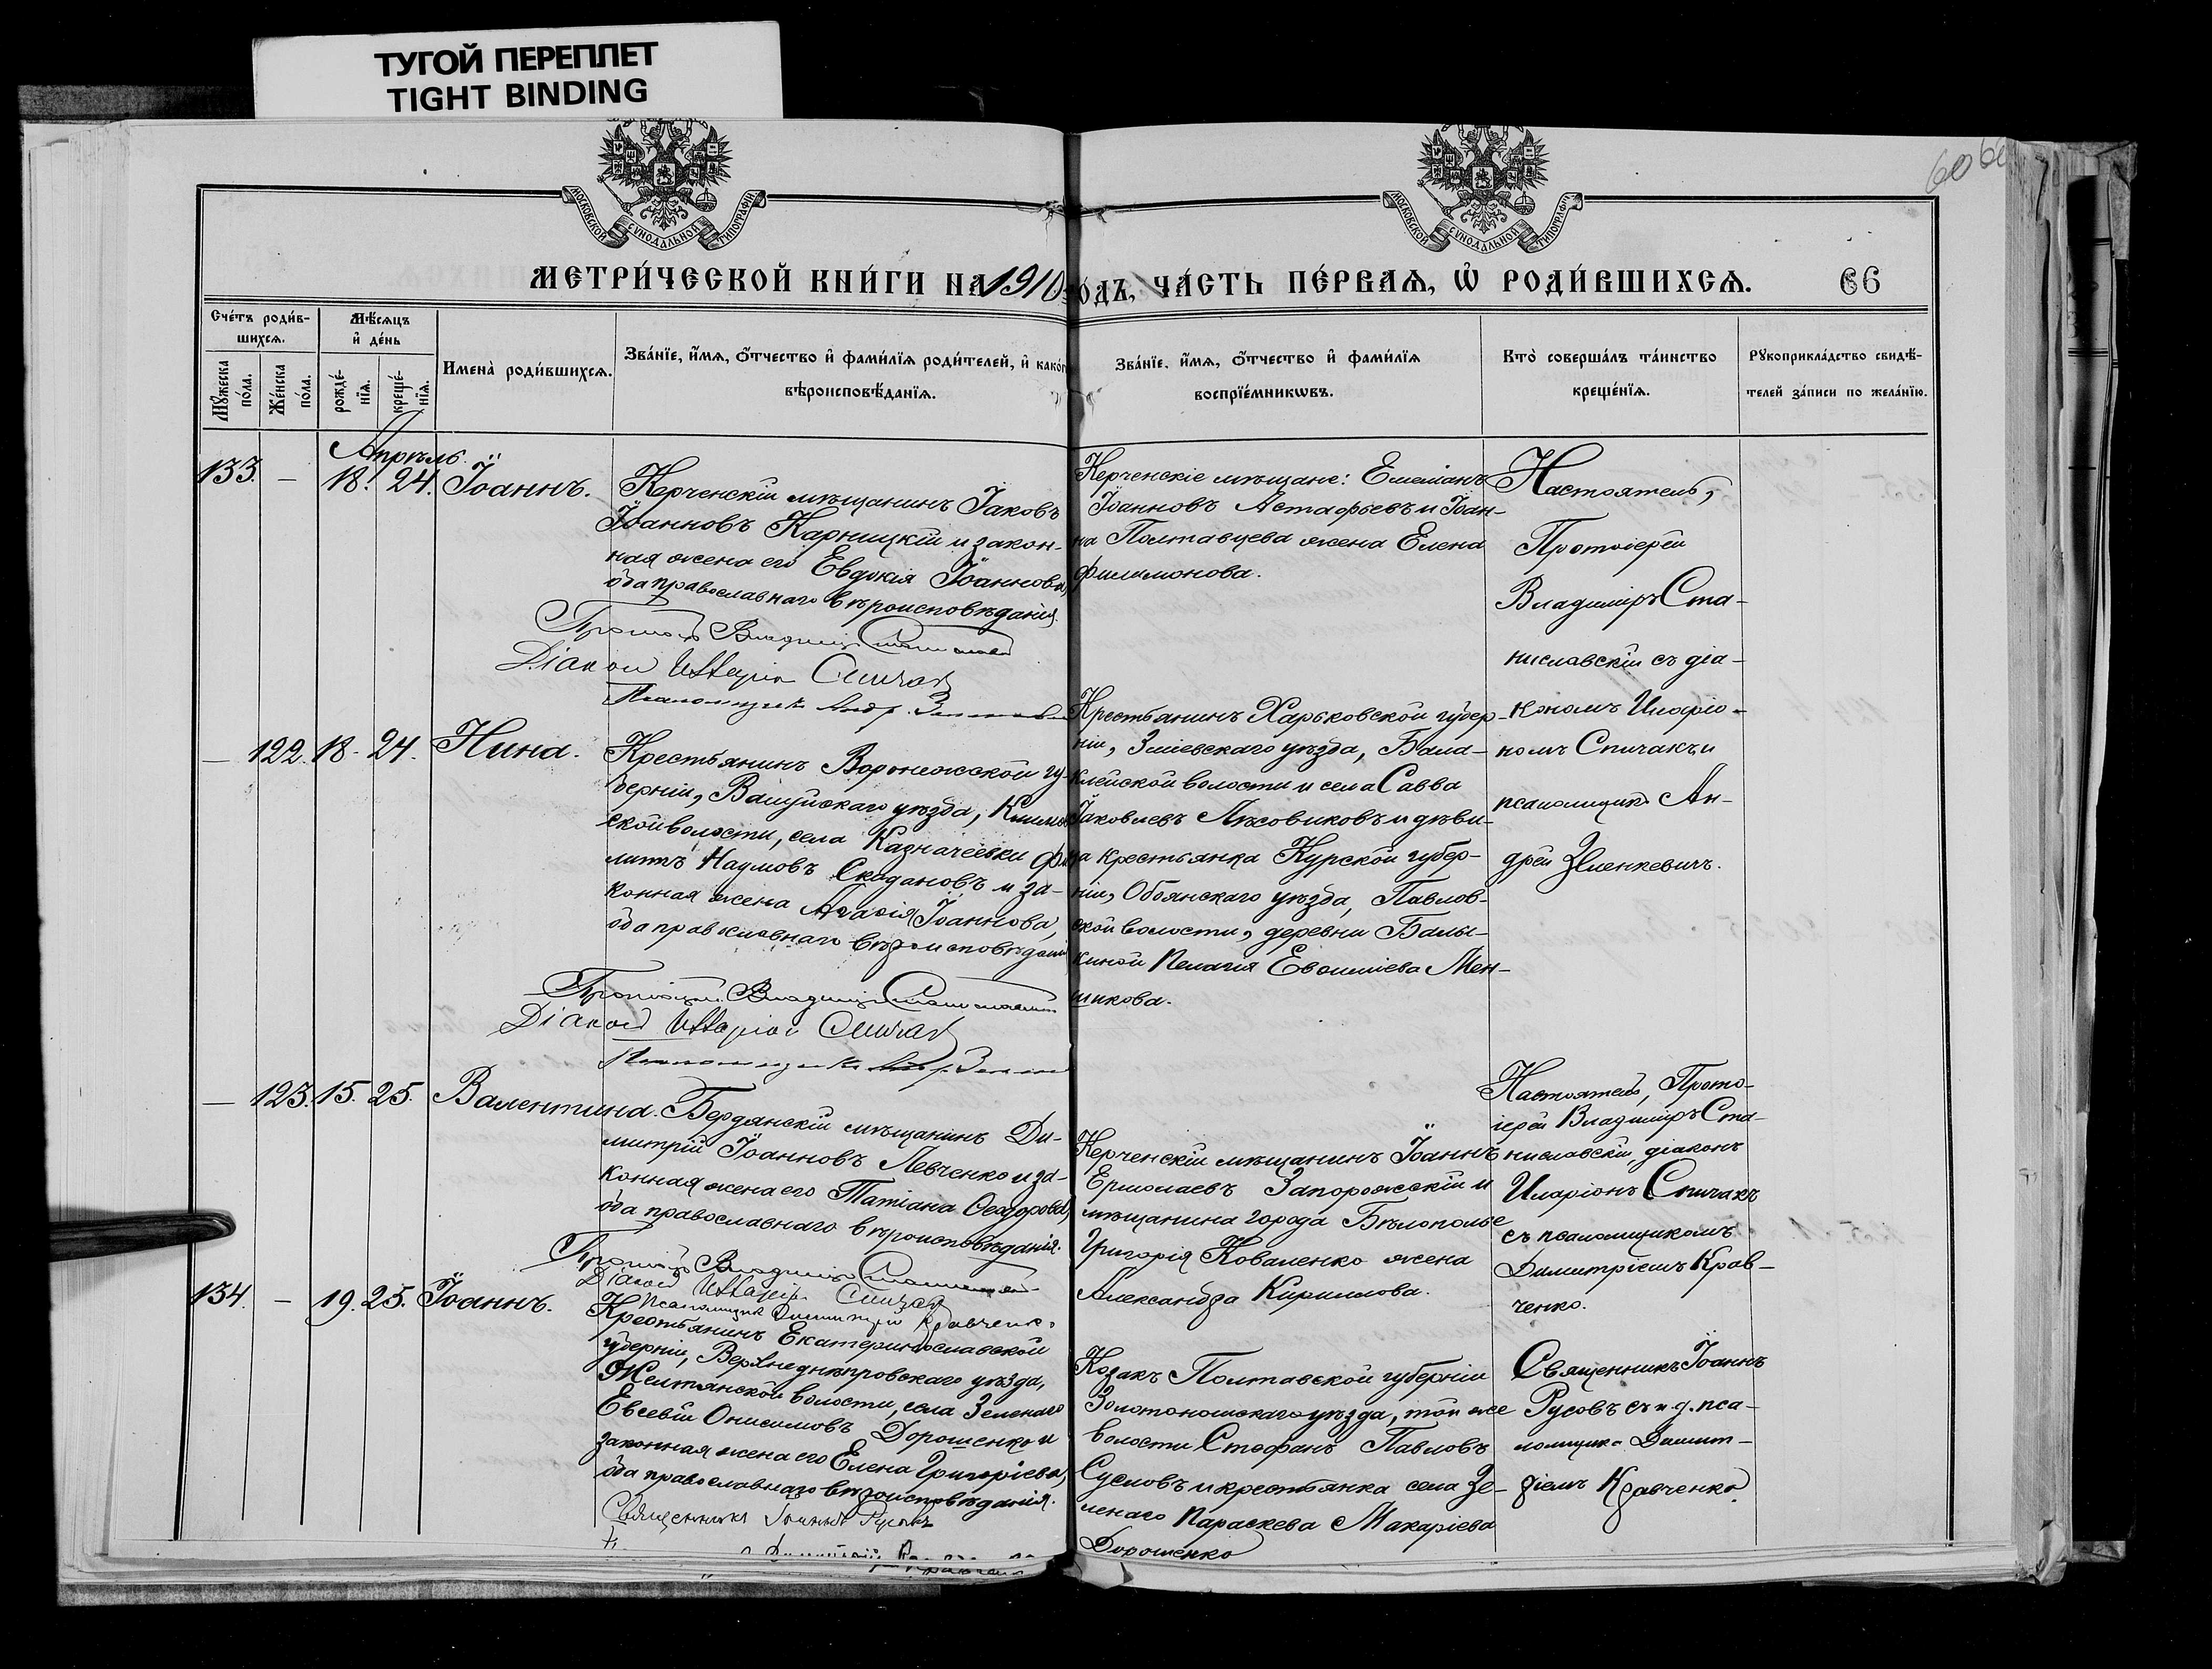 ТУГОЙ ПЕРЕПЛЕТ
TIGHT BINDING
МОСКОВСКОЙ СѴНОДАЛЬНОЙ ТИПОГРАФІИ.
МОСКОВСКОЙ СѴНОДАЛЬНОЙ ТИПОГРАФІИ.
60
МЕТРИ́ЧЕСКОЙ КНИ́ГИ НА 1910 ГО́ДЪ, ЧА́СТЬ ПЕ́РВАѦ, Ѡ҆ РОДИ́ВШИХСѦ. 66
Сче́тъ роди́в-
шихсѧ.
Мѣ́сѧцъ
и҆ де́нь
Мꙋ́жеска
по́ла.
Же́нска
по́ла.
рожде́-
нїѧ.
креще́-
нїѧ.
Имена̀ роди́вшихсѧ.
Зва́нїе, и҆́мѧ, ѻ҆́тчество и҆ фами́лїѧ роди́телей, и҆ како́гѡ
вѣроисповѣ́данїѧ.
Зва́нїе, и҆́мѧ, ѻ҆́тчество и҆ фами́лїѧ
воспрїе́мникѡвъ.
Кто̀ соверша́лъ та́инство
креще́нїѧ.
Рꙋкоприкла́дство свидѣ́-
телей за́писи по жела́нїю.
Апрѣль.
133. — 18. 24. Іоаннъ.
Керченскій мѣщанинъ Іаковъ
Іоанновъ Карницкій и закон-
ная жена его Евдокія Іоаннова,
оба православнаго вѣроисповѣданія.
Діаконъ Иларіон Спичак
Керченскіе мѣщане: Емеліанъ
Іоанновъ Астафьевъ и Іоан-
на Полтавцева жена Елена
Филимонова.
Настоятель,
Протоіерей
Владиміръ Ста-
ниславскій съ діа-
кономъ Иларіо-
номъ Спичакъ и
псаломщикъ Ан-
дрей Зленкевичъ.
— 122. 18. 24. Нина.
Крестьянинъ Воронежской гу-
берніи, Валуйскаго уѣзда,
ской волости, села Казначеевки Фи-
липъ Наумовъ Скодановъ и за-
конная жена Агафія Іоаннова,
оба православнаго вѣроисповѣданія
Діаконъ Иларіон Спичак
Крестьянинъ Харьковской губер-
ніи, Зміевскаго уѣзда, Бала-
клейской волости и села Савва
Іаковлевъ Лѣсовиковъ и дѣви-
ца крестьянка Курской губер-
ніи, Обоянскаго уѣзда, Павлов-
ской волости, деревни Балы-
киной Пелагія Евфиміева Мен-
шикова.
— 123. 15. 25. Валентина.
Бердянскій мѣщанинъ Ди-
митрій Іоанновъ Левченко и за-
конная жена его Татіана Феодорова,
оба православнаго вѣроисповѣданія.
Діаконъ Иларіон Спичак
Псаломщикъ Димитрій Кравченко
Керченскій мѣщанинъ Іоаннъ
Ермолаевъ Запорожскій и
мѣщанина города Бѣлополье
Григорія Коваленко жена
Александра Кириллова.
Настоятель, Прото-
іерей Владиміръ Ста-
ниславскій, діаконъ
Иларіонъ Спичакъ
съ псаломщикомъ
Димитріемъ Крав-
ченко.
134. — 19. 25. Іоаннъ.
Крестьянинъ Екатеринославской
губерніи, Верхнеднѣпровскаго уѣзда,
Желтянской волости, села Зеленаго
Евсевій Онисимовъ Дорошенко и
законная жена его Елена Григоріева,
оба православнаго вѣроисповѣданія.
Священникъ Іоаннъ Русовъ
Козакъ Полтавской губерніи
Золотоношскаго уѣзда, той же
волости Стефанъ Павловъ
Сусловъ и крестьянка села Зе-
ленаго Параскева Макаріева
Дорошенко
Священникъ Іоаннъ
Русовъ съ и.д. пса-
ломщика Димит-
ріемъ Кравченко.